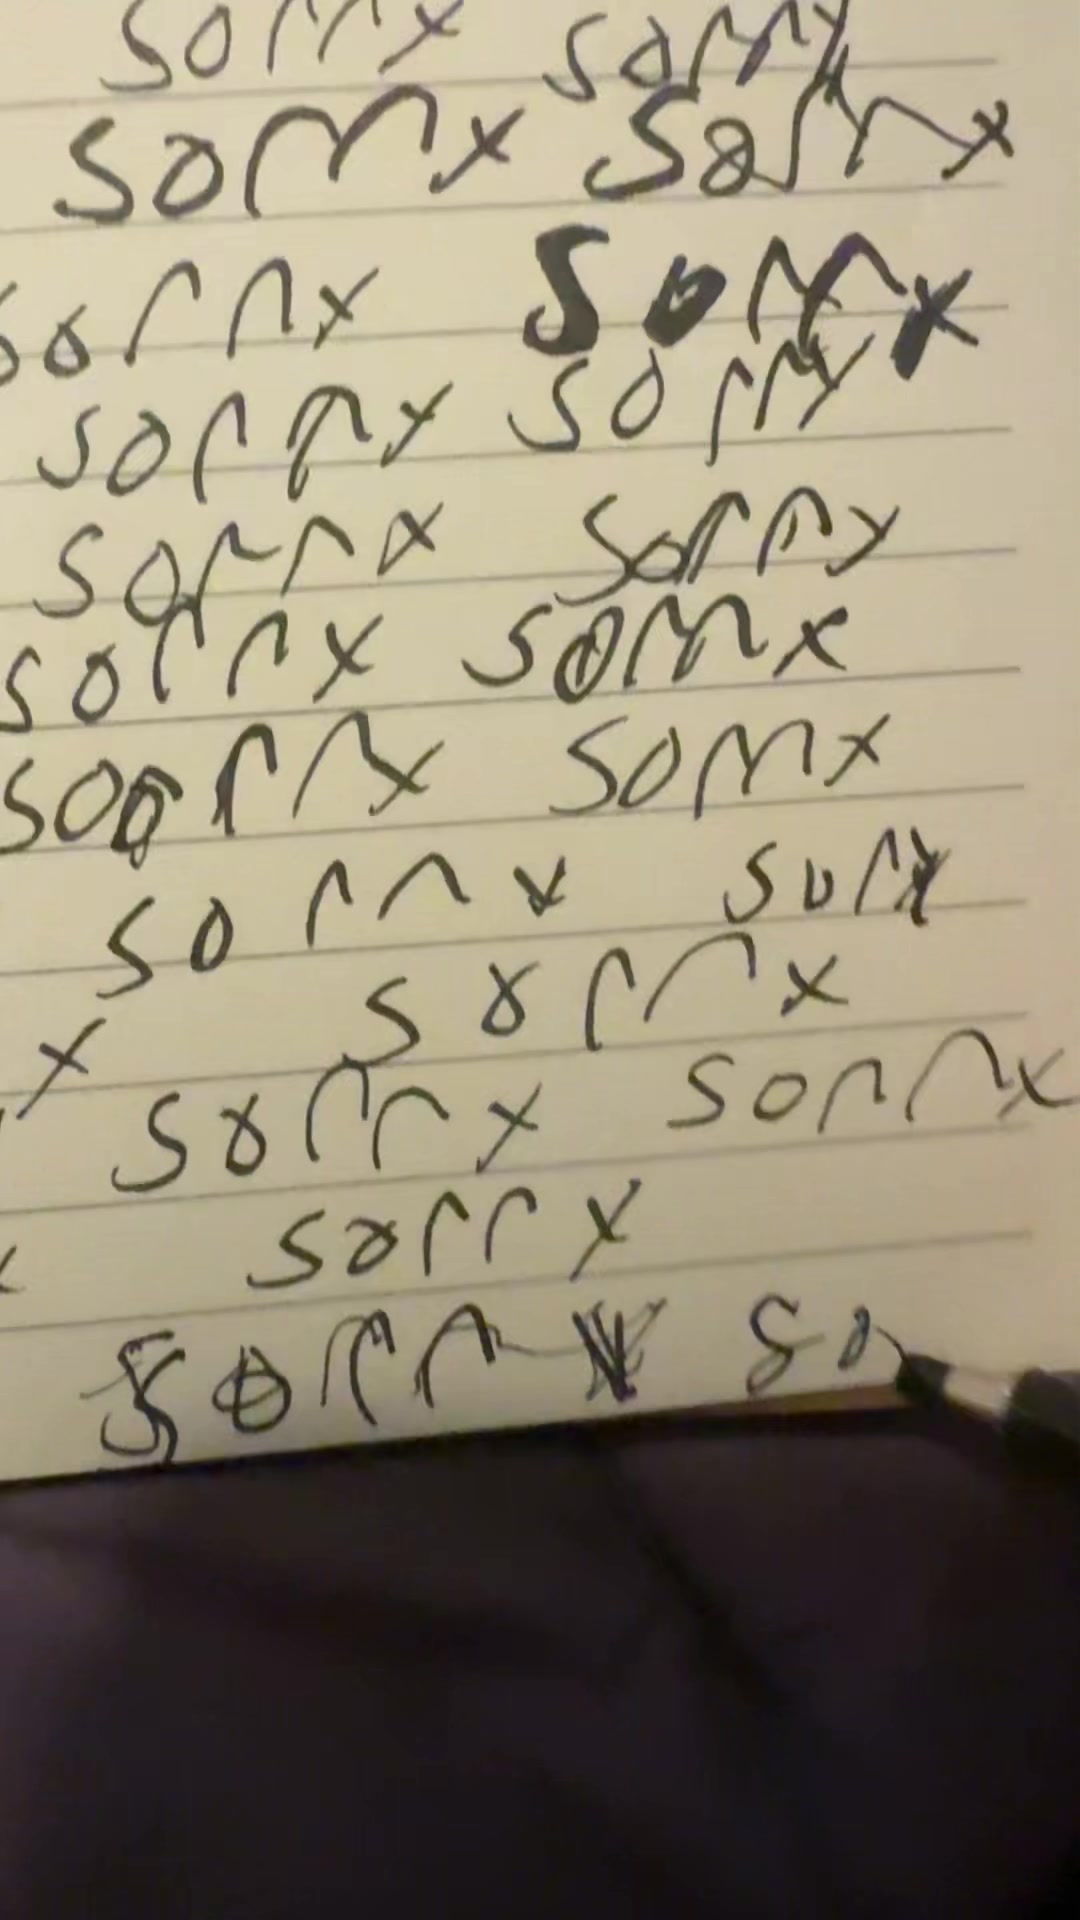 sorry sorry
sorry sorry
sorry sorry
sorry sorry
sorry sorry
sorry sorry
sorry sorry
sorry sory
sorry
sorry sorry
sorry
sorry so